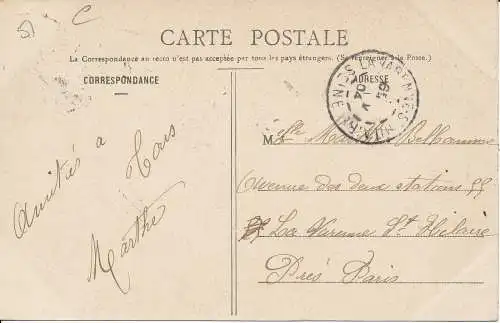 51 C
CARTE POSTALE
La Correspondance au recto n'est pas acceptée par tous les pays étrangers. (Se renseigner à la Poste.)
CORRESPONDANCE
ADRESSE
LA VARENNE-ST-HILAIRE
SEINE
04
Amitiés à
Tous
Marthe
M
lle
Avenue des deux stations 55
La Varenne St Hilaire
Près Paris